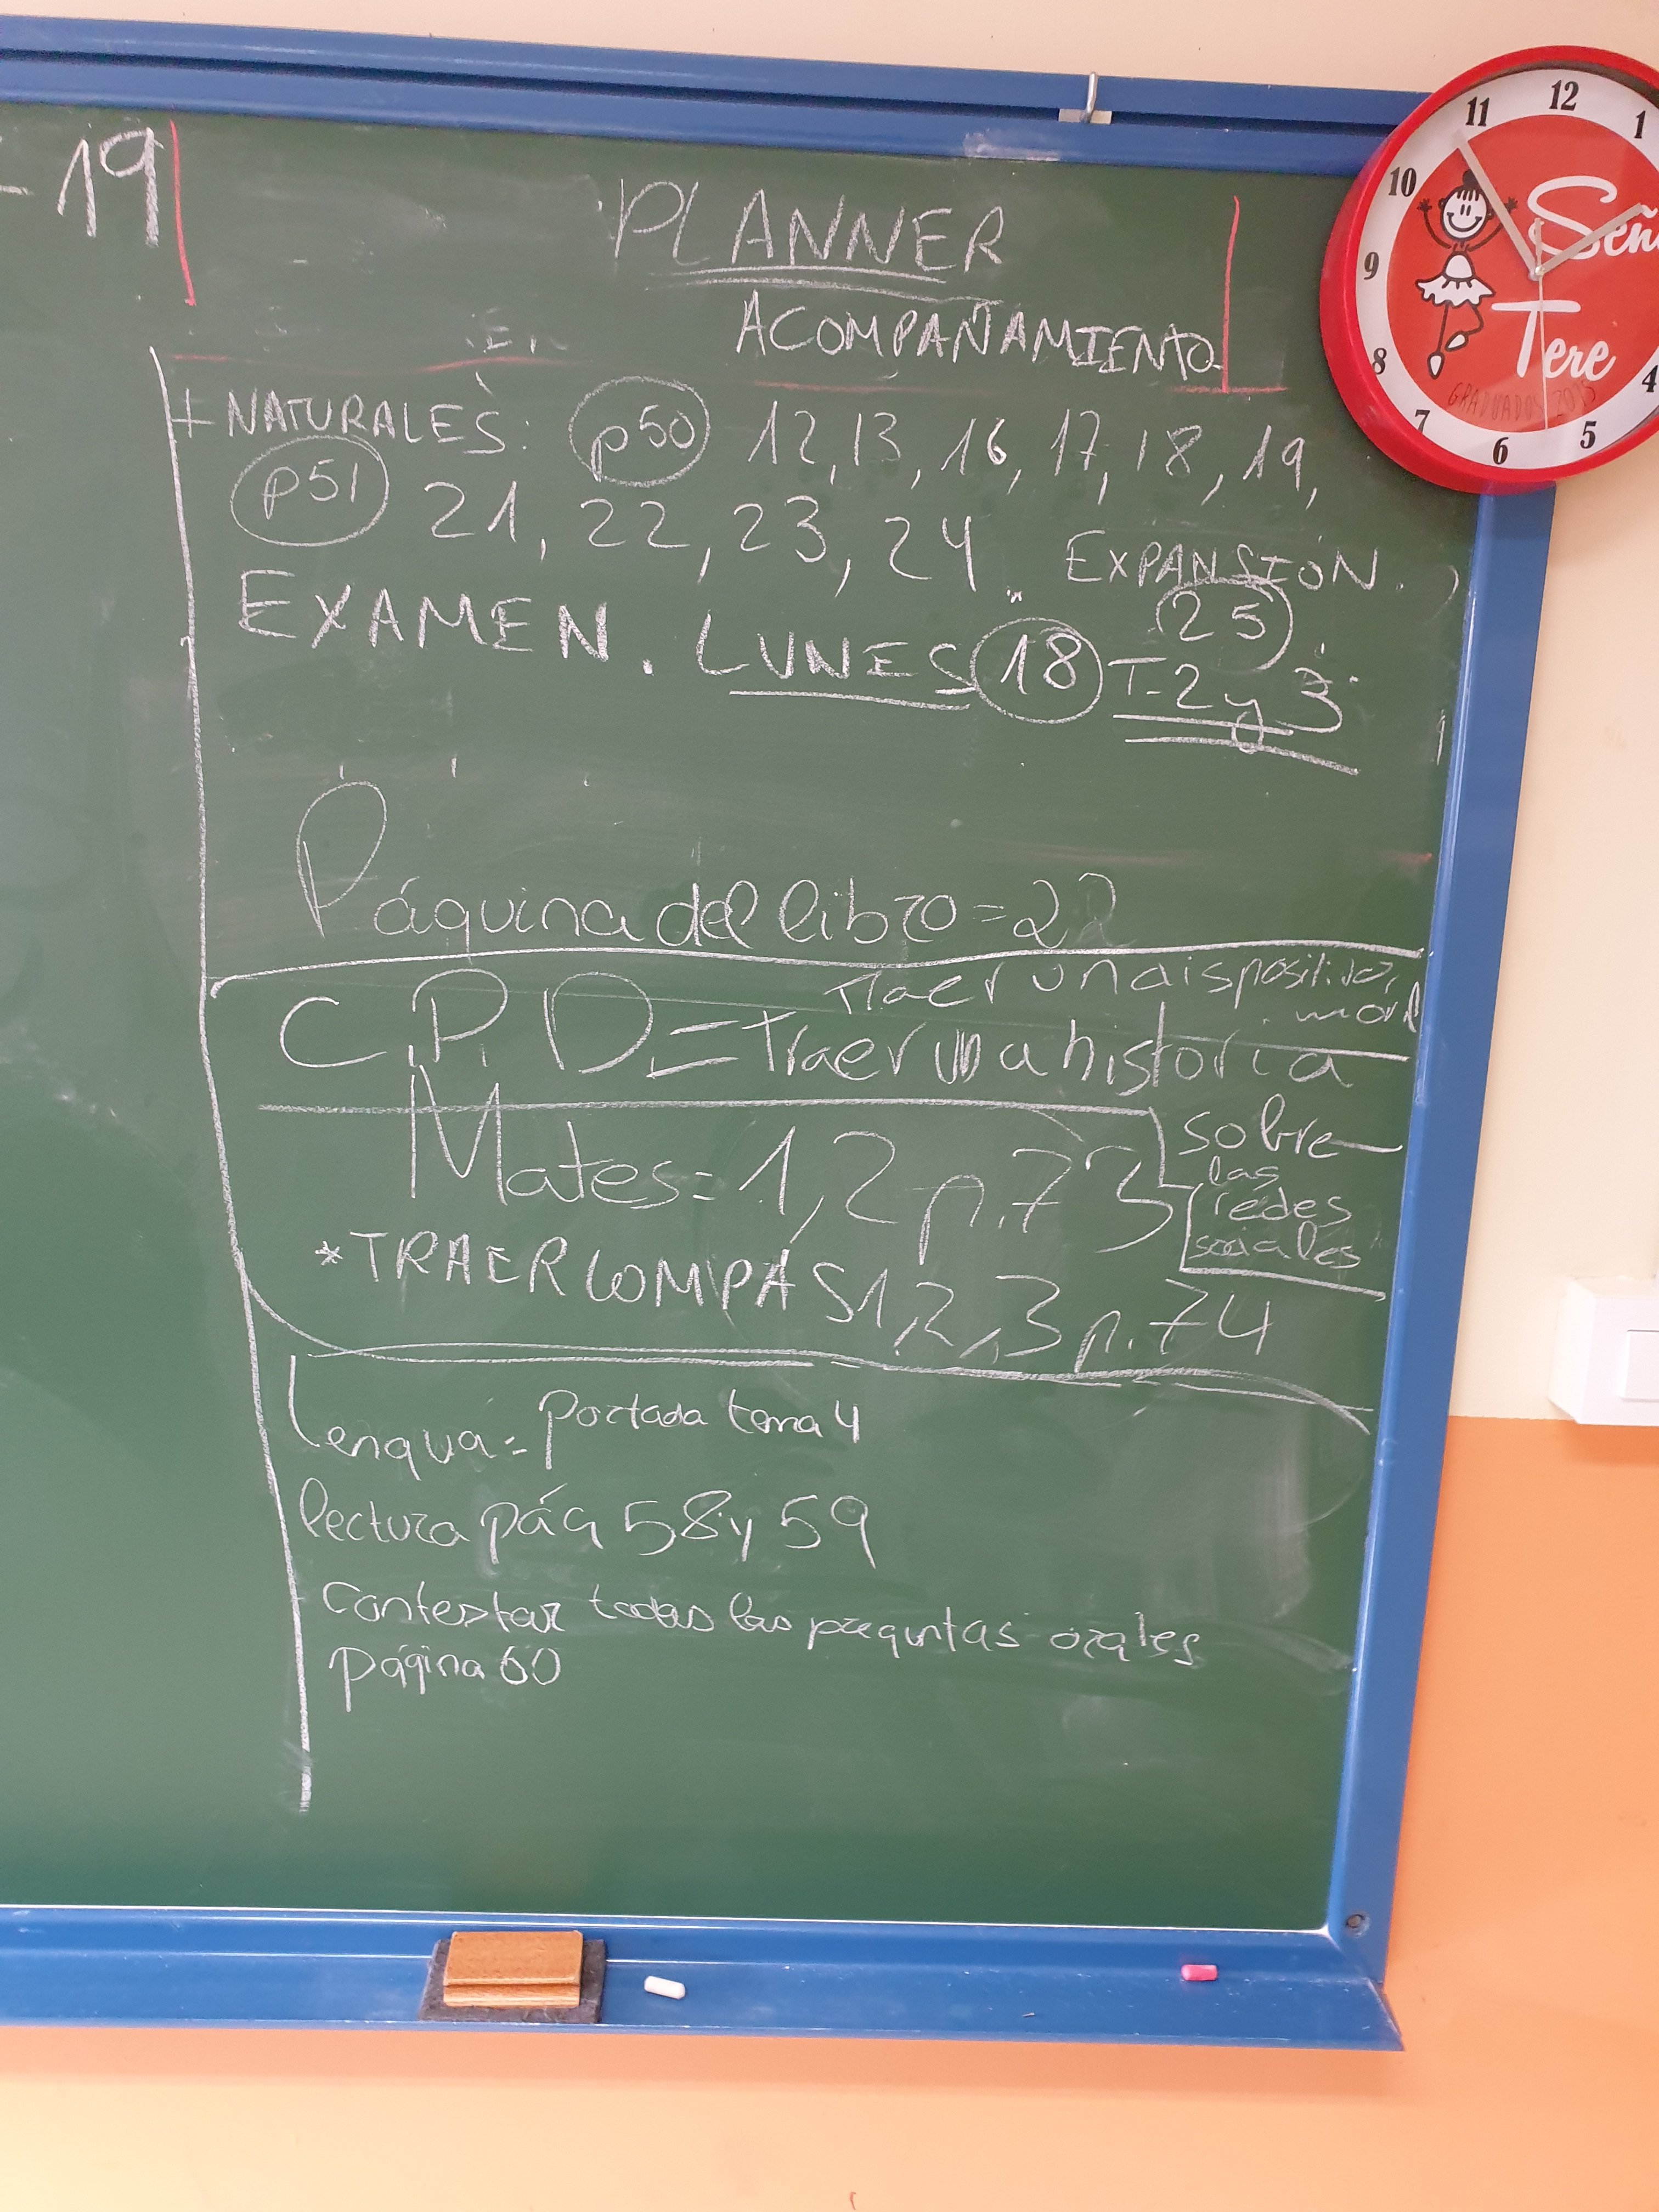 - 19
PLANNER
ACOMPAÑAMIENTO
+ NATURALES: p50 12, 13, 16, 17, 18, 19,
p51 21, 22, 23, 24. EXPANSIÓN.
25
EXAMEN. LUNES 18 T-2 y 3
Páquina del libro = 22
Traer un dispositivo
C.P.D = traer una historia
sobre
las
redes
sociales
Mates = 1, 2 p. 73
* TRAER COMPÁS 1, 2, 3 p. 74
Lengua = portada tema 4
lectura pág 58 y 59
Contestar todas las preguntas orales
página 60
11 12 1
10
9
8
7 6 5 4
Señ
Tere
GRADUADOS 2015